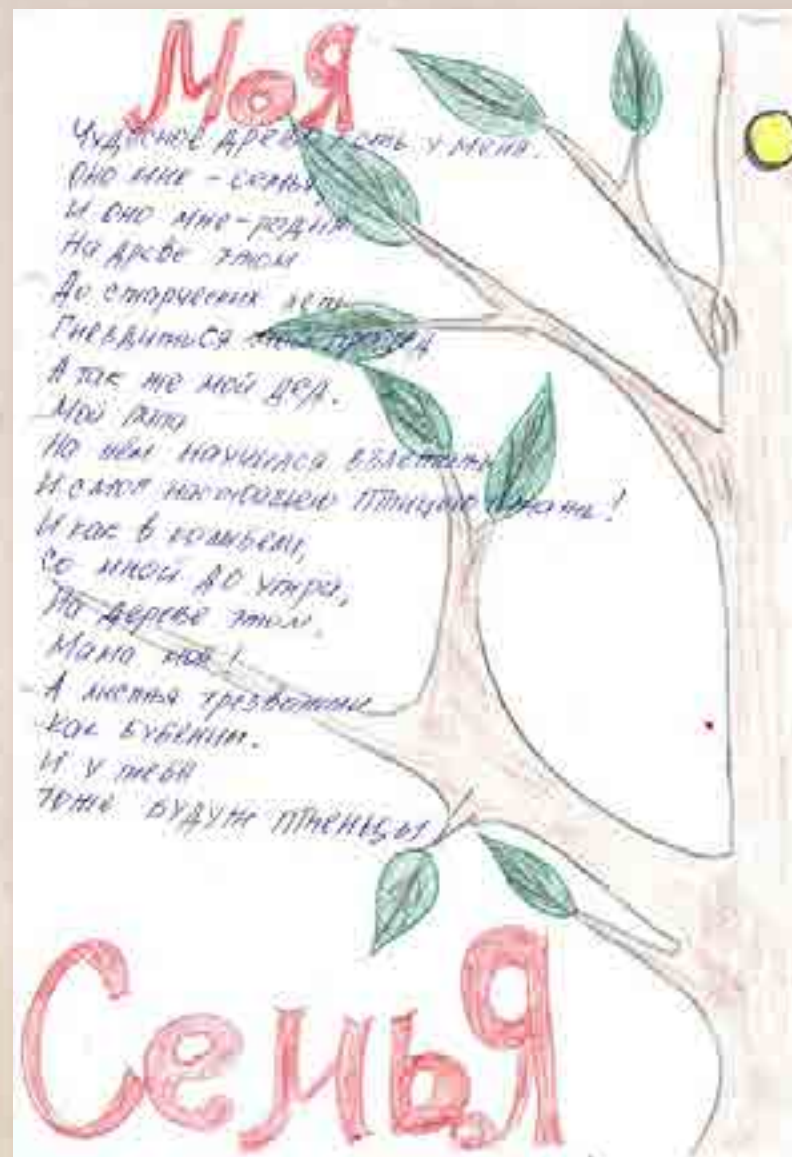 МоЯ
Чудесное древо есть у меня.
Оно мне - семья
И оно мне - родня
На древе этом
До старческих лет
Гнездиться мой прадед
А так же мой дед.
Мой папа
На нём научился взлетать
И смог настоящею птицею стать!
И как в колыбели,
Со мной до утра,
На дереве этом,
Мама моя!
А листья трезвонят
Как бубенцы.
И у тебя
Тоже будут птенцы
СемьЯ